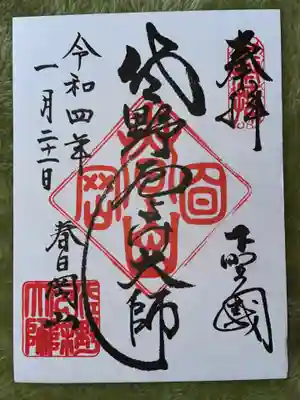 奉拝
下野國
佐野厄除大師
令和四年
一月二十一日
春日岡山